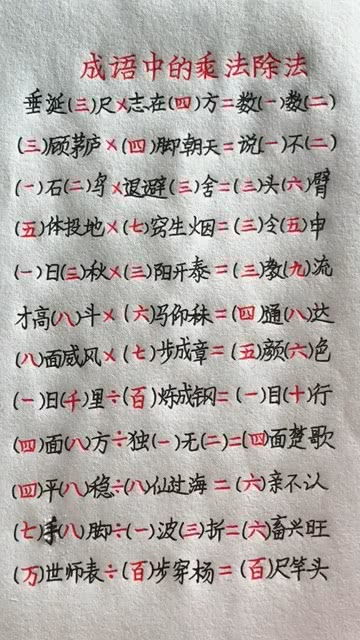 成语中的乘法除法
垂涎(三)尺×志在(四)方=数(一)数(二)
(三)顾茅庐×(四)脚朝天=说(一)不(二)
(一)石(二)鸟×退避(三)舍=(三)头(六)臂
(五)体投地×(七)窍生烟=(三)令(五)申
(一)日(三)秋×(三)阳开泰=(三)教(九)流
才高(八)斗×(六)马仰秣=(四)通(八)达
(八)面威风×(七)步成章=(五)颜(六)色
(一)日(千)里÷(百)炼成钢=(一)目(十)行
(四)面(八)方÷独(一)无(二)=(四)面楚歌
(四)平(八)稳÷(八)仙过海=(六)亲不认
(七)手(八)脚÷(一)波(三)折=(六)畜兴旺
(万)世师表÷(百)步穿杨=(百)尺竿头